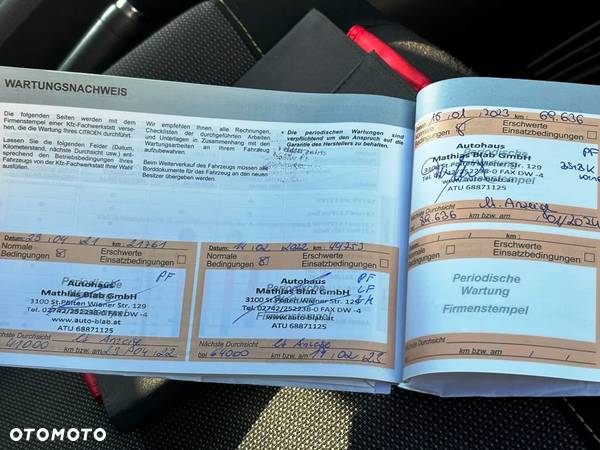 WARTUNGSNACHWEIS
Die folgenden Seiten werden mit dem
Firmenstempel einer Kfz-Fachwerkstatt verse-
hen, die die Wartung Ihres CITROËN durchführt.
Lassen Sie die folgenden Felder (Datum,
Kilometerstand, nächste Durchsicht usw.) ent-
sprechend den Betriebsbedingungen Ihres
Fahrzeugs von der Kfz-Fachwerkstatt Ihrer Wahl
ausfüllen.
Wir empfehlen Ihnen, alle Rechnungen,
Checklisten der durchgeführten Arbeiten
und Unterlagen in Zusammenhang mit den
Wartungsarbeiten an Ihrem Fahrzeug
aufzubewahren.
Beim Weiterverkauf des Fahrzeugs müssen alle
Borddokumente für das Fahrzeug an den neuen
Besitzer übergeben werden.
• Die periodischen Wartungen sind
verpflichtend um den Anspruch auf die
Garantie des Herstellers zu behalten.
Datum: 29.04.21 km: 21761
Normale
Bedingungen
Erschwerte
Einsatzbedingungen
PF
Autohaus
Mathias Blab GmbH
3100 St.Pölten Wiener Str. 129
Tel. 02742/252238-0 FAX DW -4
www.auto-blab.at
ATU 68871125
Nächste Durchsicht
41000 km bzw. am 29/04/22
Datum: 14.02.2022 km: 44753
Normale
Bedingungen
Erschwerte
Einsatzbedingungen
PF
Autohaus
Mathias Blab GmbH
3100 St.Pölten Wiener Str. 129
Tel. 02742/252238-0 FAX DW -4
www.auto-blab.at
ATU 68871125
Nächste Durchsicht lt. Anzeige
bei 64000 km bzw. am 14/02/23
Datum: 16.01.2023 km: 69.636
Erschwerte
Einsatzbedingungen
PF
Autohaus
Mathias Blab GmbH
3100 St.Pölten Wiener Str. 129
Tel. 02742/252238-0 FAX DW -4
www.auto-blab.at
ATU 68871125
Nächste Durchsicht lt. Anzeige
km bzw. am 01/2024
Datum: / / km:
Normale
Bedingungen
Erschwerte
Einsatzbedingungen
Periodische
Wartung
Firmenstempel
Nächste Durchsicht
bei km bzw. am / /
OTOMOTO